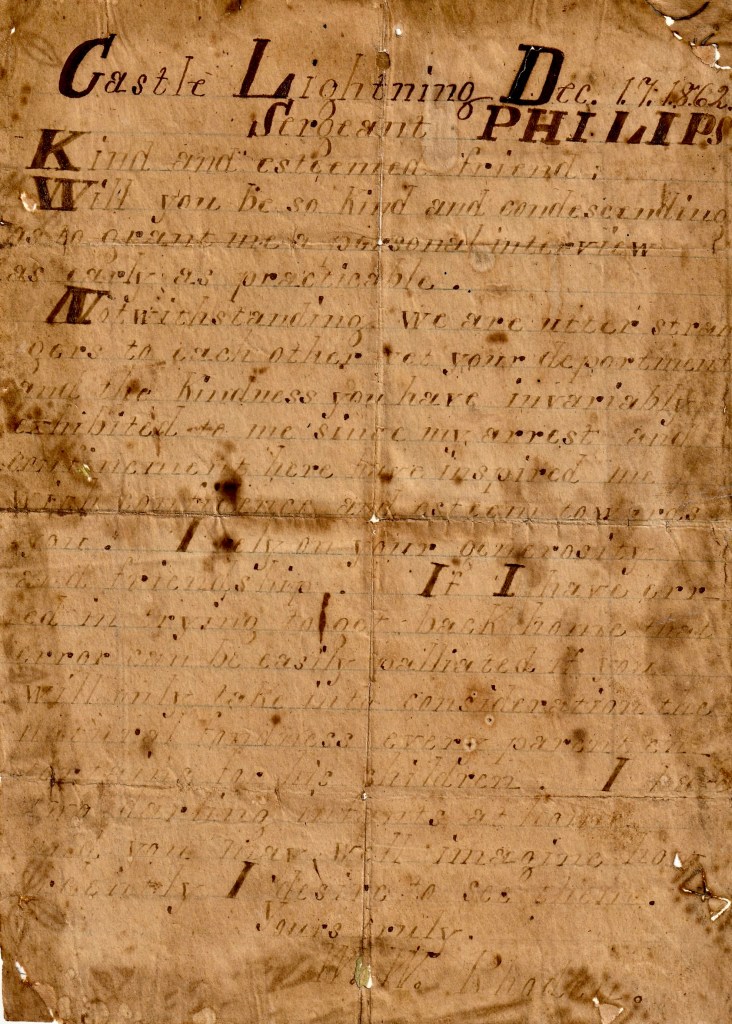 Castle Lightning Dec. 17. 1862.
Sergeant PHILIPS
Kind and esteemed friend;
Will you be so kind and condescending
as to grant me a personal interview
as early as practicable..
Notwithstanding we are utter stran
gers to each other yet your department
and the kindness you have invariably
exhibited to me since my arrest and
confinement here have inspired me
with confidence and esteem towards
you. I rely on your generosity
and friendship. If I have err-
ed in trying to get back home that
error can be easily palliated if you
will only take into consideration the
natural fondness every parent en-
tertains for his children. I have
two darling infants at home
and you may well imagine how
I desire to see them.
Yours truly.
W.